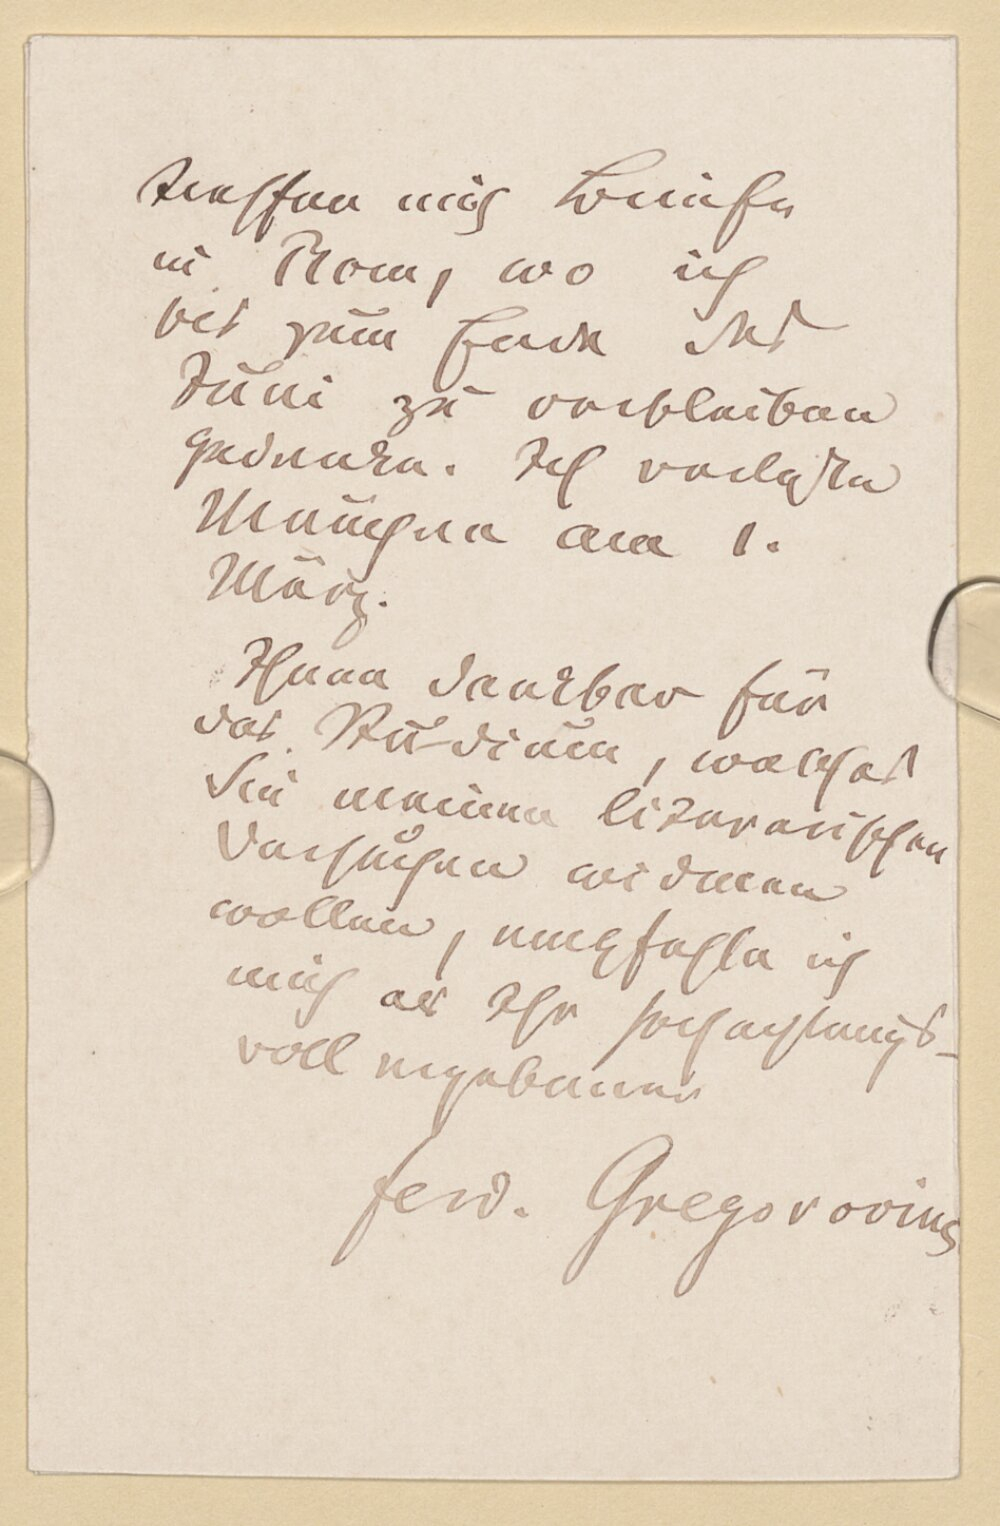 treffen mich Briefe
in Rom, wo ich
bis zum Ende des
Juni zu verbleiben
gedenke. Ich verlasse
München am 1.
März.
Ihnen dankbar für
das Studium, welches
Sie meinen literarischen
Versuchen widmen
wollen, empfehle ich
mich als Ihr hochachtungs-
voll ergebener
Ferd. Gregorovius